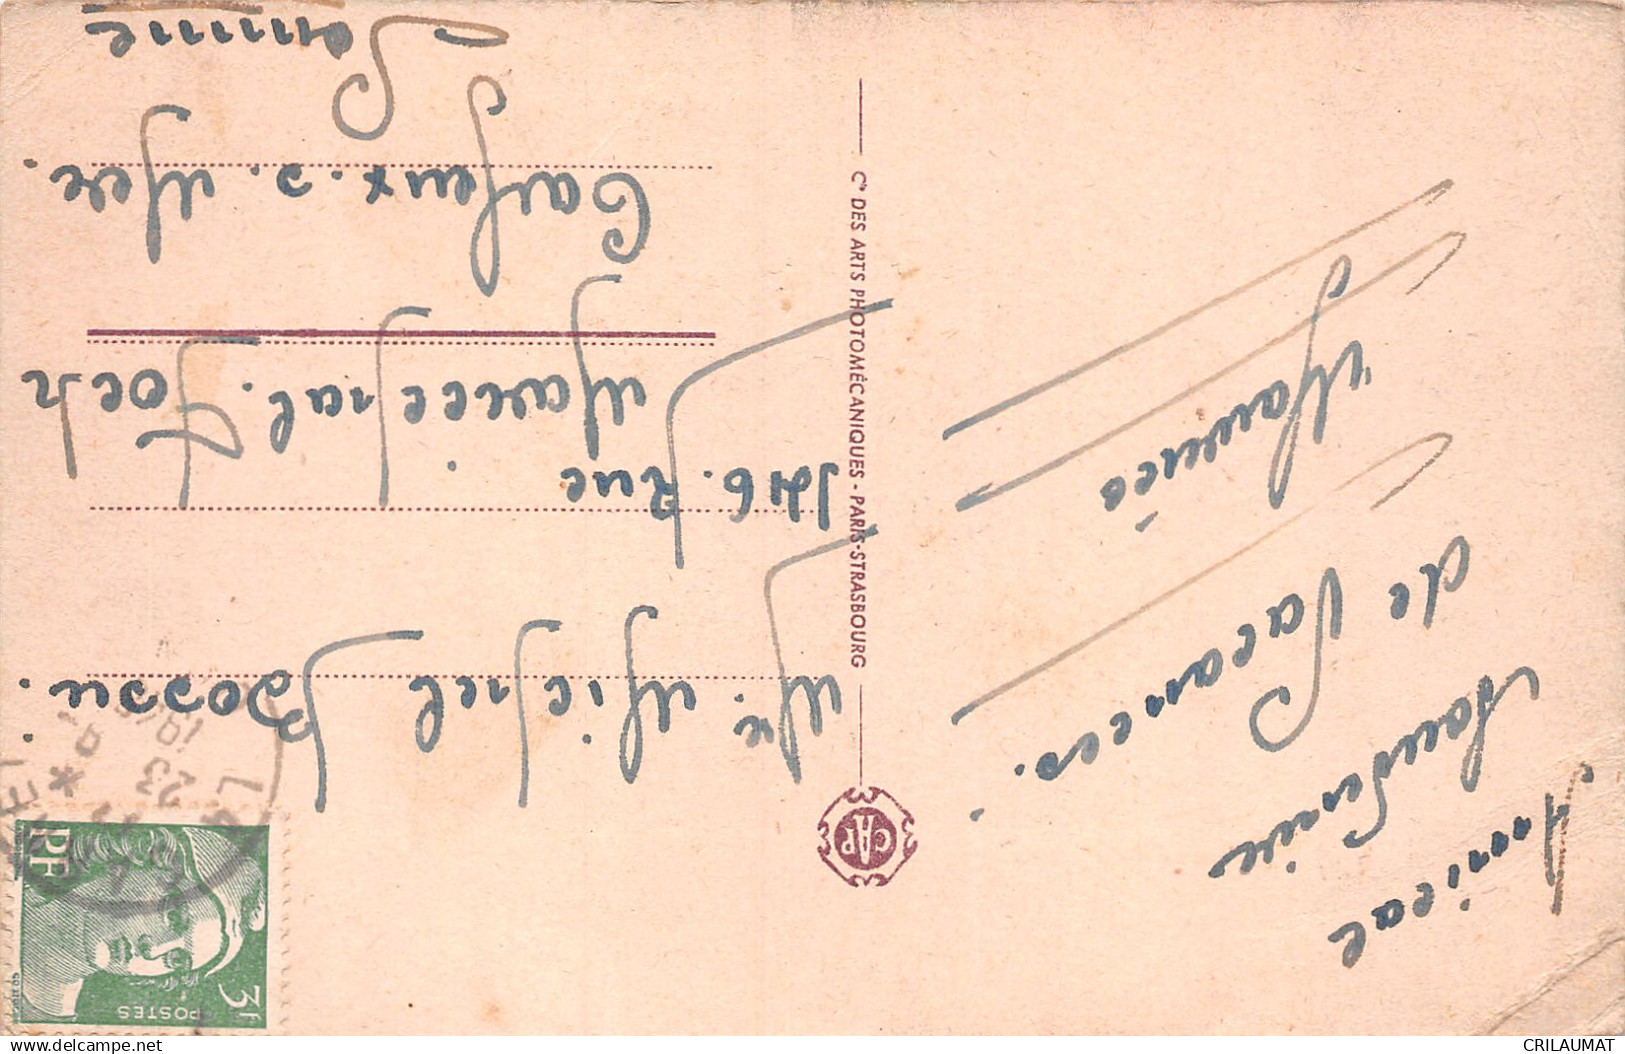 Amical
Souvenir
de Vacances.
Maurice
Mr. Michel Bossu.
Rue
Marcechal. Foch
Cayeux. s. Mer.
Somme
Cie DES ARTS PHOTOMÉCANIQUES - PARIS-STRASBOURG
CAP
RF
POSTES
3F
23
delcampe.net
CRILAUMAT